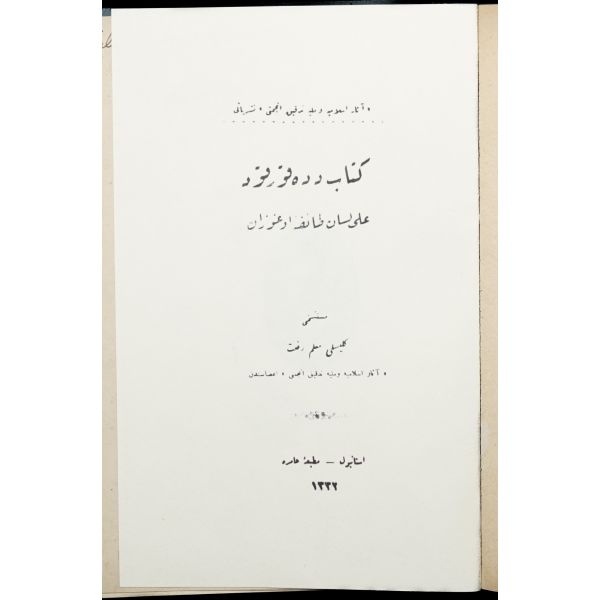 « آثار اسلامیه و ملیه تدقیق انجمنی » نشریاتی
كتاب دده قورقود
علی لسان طائفهٔ اوغوزان
مستنسخی
كلیسلی معلم رفعت
« آثار اسلامیه و ملیه تدقیق انجمنی » اعضاسندن
استانبول — مطبعهٔ عامره
۱۳۳۲